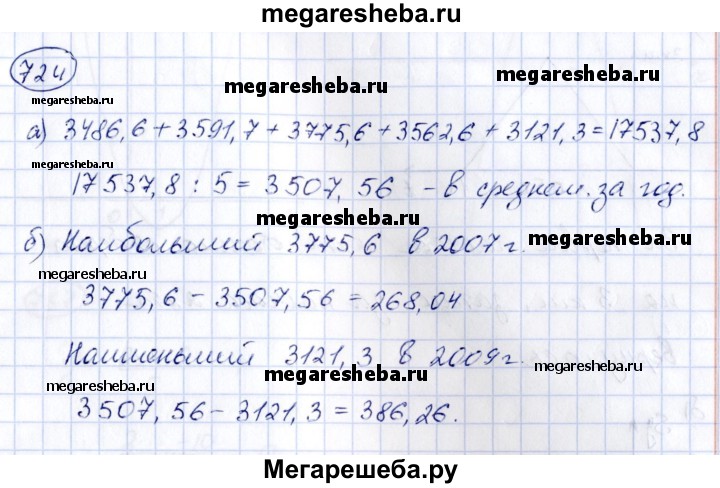 megaresheba.ru
724
megaresheba.ru
megaresheba.ru
а) 3486,6 + 3591,7 + 3775,6 + 3562,6 + 3121,3 = 17537,8
megaresheba.ru
megaresheba.ru
17537,8 : 5 = 3507,56 - в среднем. за год.
megaresheba.ru
б) Наибольший 3775,6 в 2007 г.
megaresheba.ru
megaresheba.ru
3775,6 - 3507,56 = 268,04
Наименьший 3121,3 в 2009 г.
megaresheba.ru
megaresheba.ru
megaresheba.ru
3507,56 - 3121,3 = 386,26.
Мегарешеба.ру